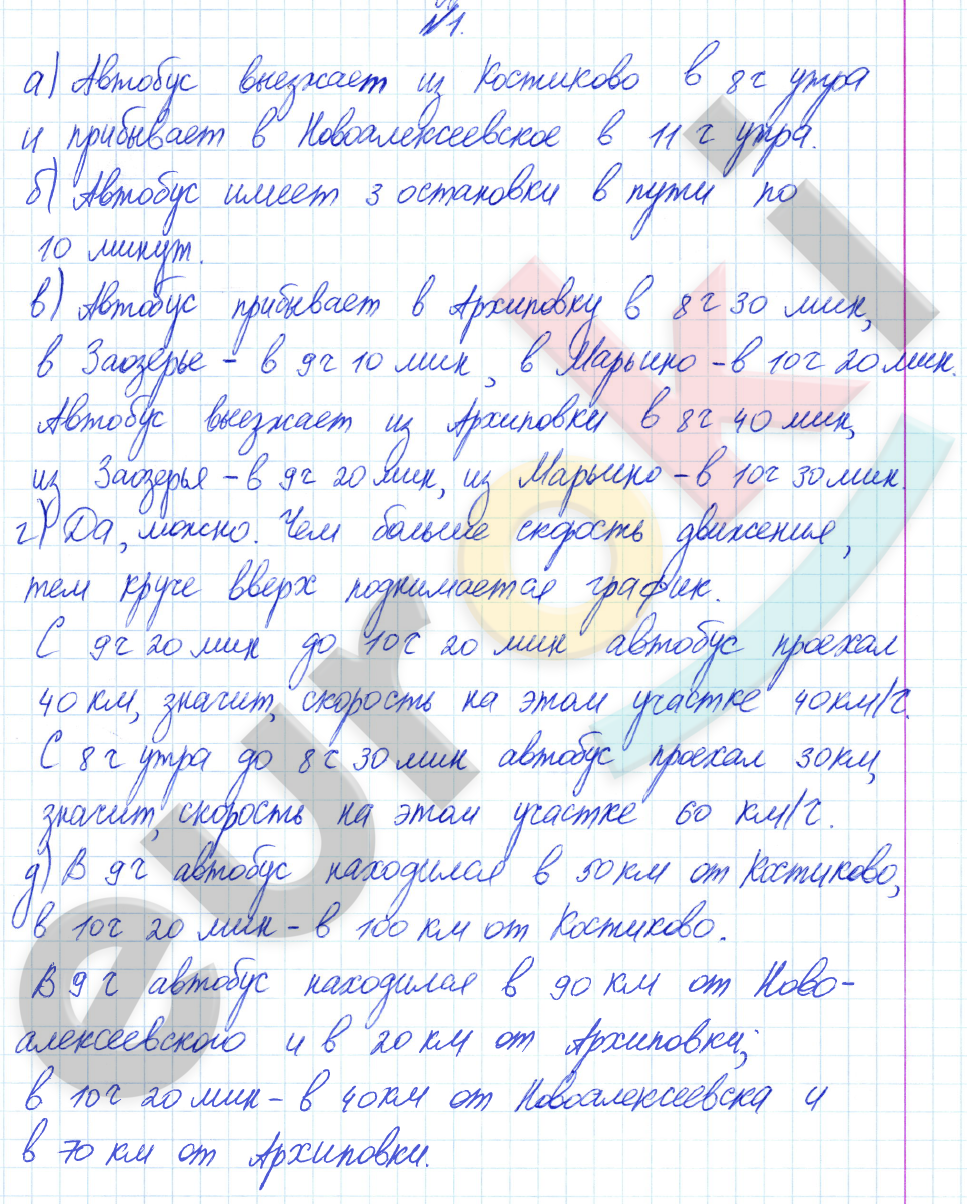 №1.
а) Автобус выезжает из Костиково в 8 ч утра
и прибывает в Новоалексеевское в 11 ч утра.
б) Автобус имеет 3 остановки в пути по
10 минут.
в) Автобус прибывает в Архиповку в 8 ч 30 мин,
в Заозерье - в 9 ч 10 мин, в Марьино - в 10 ч 20 мин.
Автобус выезжает из Архиповки в 8 ч 40 мин,
из Заозерья - в 9 ч 20 мин, из Марьино - в 10 ч 30 мин.
г) Да, можно. Чем больше скорость движения,
тем круче вверх поднимается график.
С 9 ч 20 мин до 10 ч 20 мин автобус проехал
40 км, значит, скорость на этом участке 40 км/ч.
С 8 ч утра до 8 ч 30 мин автобус проехал 30 км,
значит, скорость на этом участке 60 км/ч.
д) В 9 ч автобус находился в 50 км от Костиково,
в 10 ч 20 мин - в 100 км от Костиково.
В 9 ч автобус находился в 90 км от Ново-
алексеевского и в 20 км от Архиповки;
в 10 ч 20 мин - в 40 км от Новоалексеевска и
в 70 км от Архиповки.
euroki